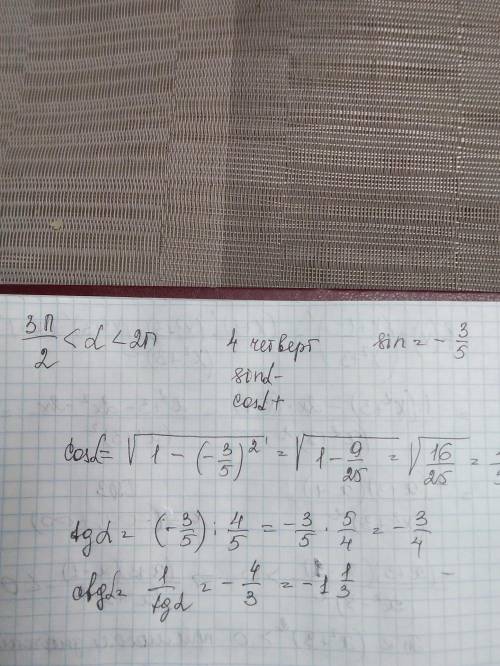 3П/2 < α < 2П 4 четверт sin = - 3/5
sinα -
cosα +
cosα = √(1 - (-3/5)²) = √(1 - 9/25) = √(16/25) =
tgα = (-3/5) : 4/5 = -3/5 · 5/4 = -3/4
ctgα = 1/tgα = -4/3 = -1 1/3